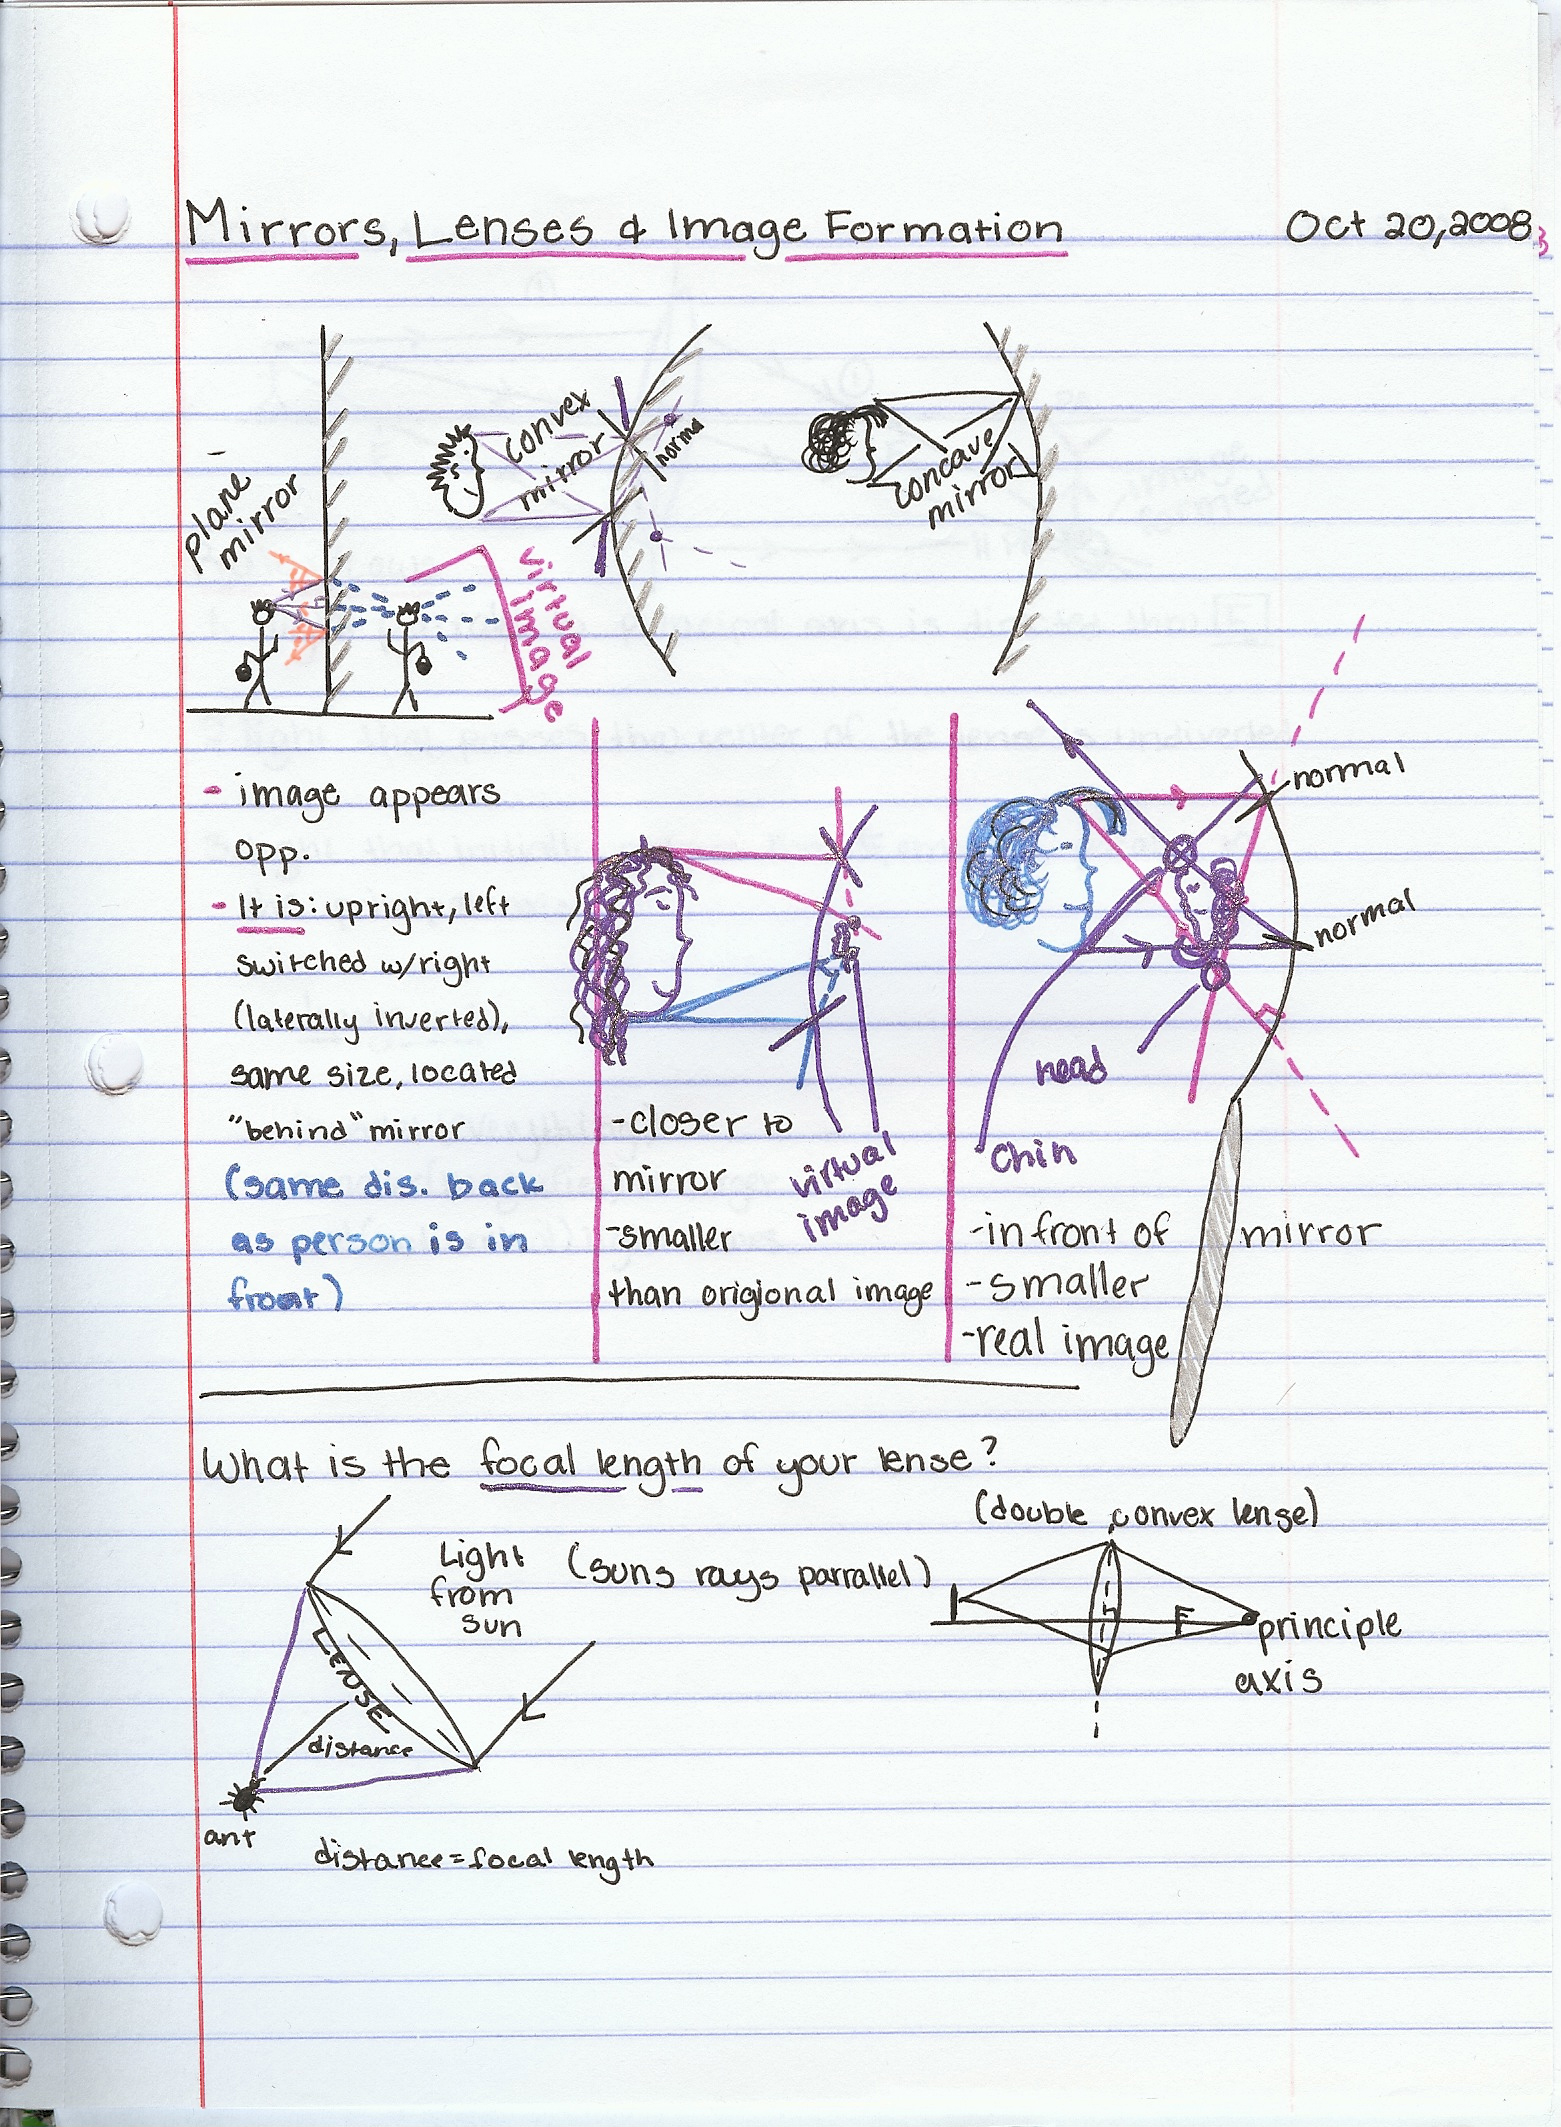 Mirrors, Lenses & Image Formation
Oct 20, 2008
plane
mirror
convex
mirror
normal
concave
mirror
virtual
image
- image appears
opp.
- It is: upright, left
switched w/right
(laterally inverted),
same size, located
"behind" mirror
(same dis. back
as person is in
front)
-closer to
mirror
-smaller
than origional image
virtual
image
normal
normal
head
chin
-in front of mirror
-smaller
-real image
What is the focal length of your lense?
Light
from
sun
(suns rays parrallel)
LENSE
distance
ant
distance = focal length
(double convex lense)
F
principle
axis